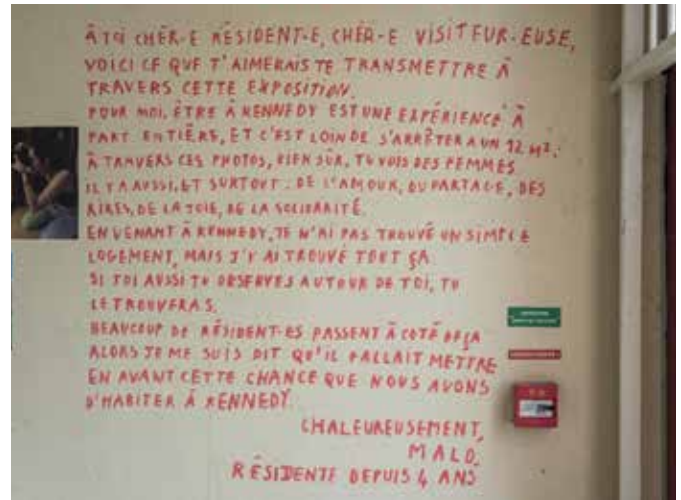 À TOI CHÈR-E RÉSIDENT-E, CHÈR-E VISITEUR-EUSE,
VOICI CE QUE T'AIMERAIS TE TRANSMETTRE À
TRAVERS CETTE EXPOSITION.
POUR MOI, ÊTRE À KENNEDY EST UNE EXPÉRIENCE À
PART ENTIÈRE, ET C'EST LOIN DE S'ARRÊTER A UN 12 M².
À TRAVERS CES PHOTOS, BIEN SÛR, TU VOIS DES FEMMES
IL Y A AUSSI, ET SURTOUT : DE L'AMOUR, DU PARTAGE, DES
RIRES, DE LA JOIE, DE LA SOLIDARITÉ.
EN VENANT À KENNEDY, JE N'AI PAS TROUVÉ UN SIMPLE
LOGEMENT, MAIS J'Y AI TROUVÉ TOUT ÇA.
SI TOI AUSSI TU OBSERVES AUTOUR DE TOI, TU
LE TROUVERAS.
BEAUCOUP DE RÉSIDENT-ES PASSENT À COTÉ DE ÇA
ALORS JE ME SUIS DIT QU'IL FALLAIT METTRE
EN AVANT CETTE CHANCE QUE NOUS AVONS
D'HABITER À KENNEDY.
CHALEUREUSEMENT,
MALO,
RÉSIDENTE DEPUIS 4 ANS